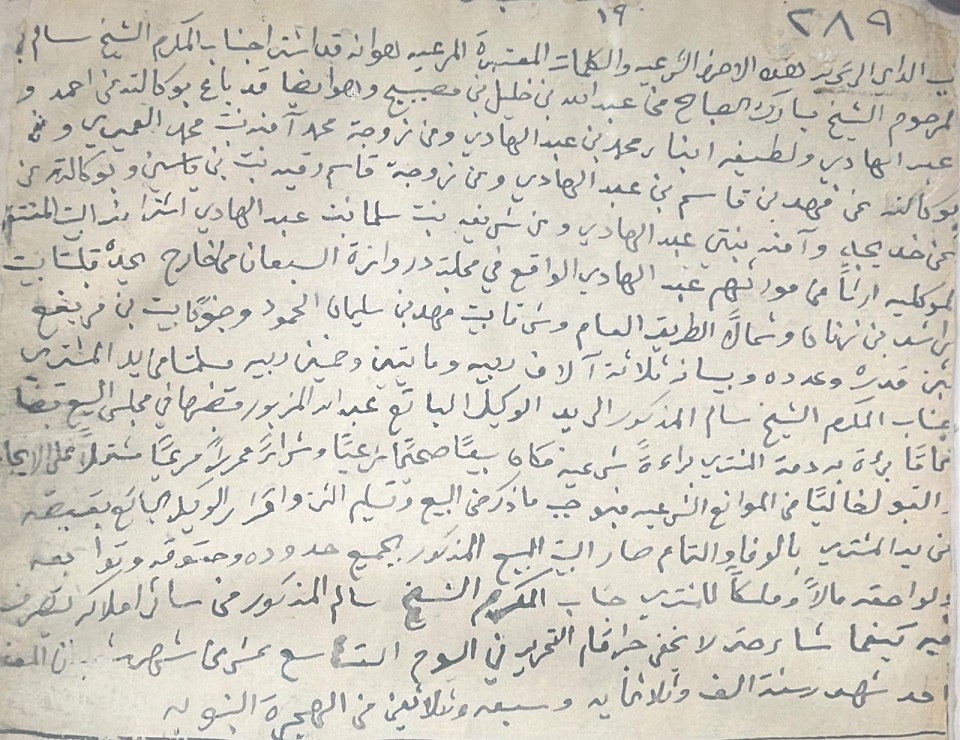 ٢٨٩
١٩
الداعي الى تحرير هذه الاحرف الشرعيه والكلمات المعتبرة المرعيه هوانه قد اشترا جناب المكرم الشيخ سالم
المرحوم الشيخ مبارك الصباح من عبدالله بن خليل بن مصيبيح وهو ايضا قد باع بوكالته عن احمد و
عبد الهادي ولطيفه ابناء محمد بن عبد الهادي وعن زوجة محمد آمنه بنت محمد العميري و
بوكالته عن فهد بن قاسم بن عبد الهادي وعن زوجة قاسم رقيه بنت بن ياسين وبوكالته عن
عن خديجه وآمنه بنتي عبد الهادي وعن شريفه بنت سلمانة بنت عبد الهادي اشترا منه البيت المنتقل
لموكليه ارثاً من مورثهم عبد الهادي الواقع في محلة دروازة السبعان من خارج يحدّه قبلتا بيت
راشد بن نبهان وشمالاً الطريق العام وشرقا بيت فهد بن سليمان الحمود وجنوبًا بيت بن فريفع
بثمن قدره وعدده وبيانه ثلاثة آلاف ربيه ومايتين وخمسين ربيه مسلمتا من يد المشتري
جناب المكرم الشيخ سالم المذكور الى يد الوكيل البائع عبدالله المزبور مقبضها في مجلس البيع قبضا
تماما برئة به ذمة المشتري براءةً شرعيه فكان بيعًا صحيحًا شرعيًا وشراءً محررًا مرعيًا مشتملاً على الايجاب
والقبول خاليًا من الموانع الشرعيه فبموجب ما ذكر من البيع وتسليم الثمن واقرار الوكيل البائع بقبضه
من يد المشتري بالوفا والتمام صار البيت المبيع المذكور بجميع حدوده وحقوقه وتوابعه
ولواحقه مالاً وملكاً للمشتري جناب المكرم الشيخ سالم المذكور من سائر املاكه يتصرف
فيه كيفما شاء وحتى لا يخفى جرا قلم التحرير في اليوم التاسع عشر من شهر شعبان المعظم
احد شهور سنة الف وثلاثمايه وسبعه وثلاثين من الهجرة النبويه